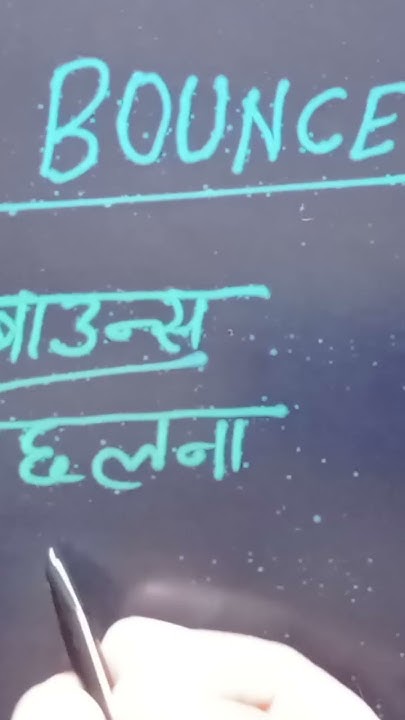 BOUNCE
बाउन्स
छलना